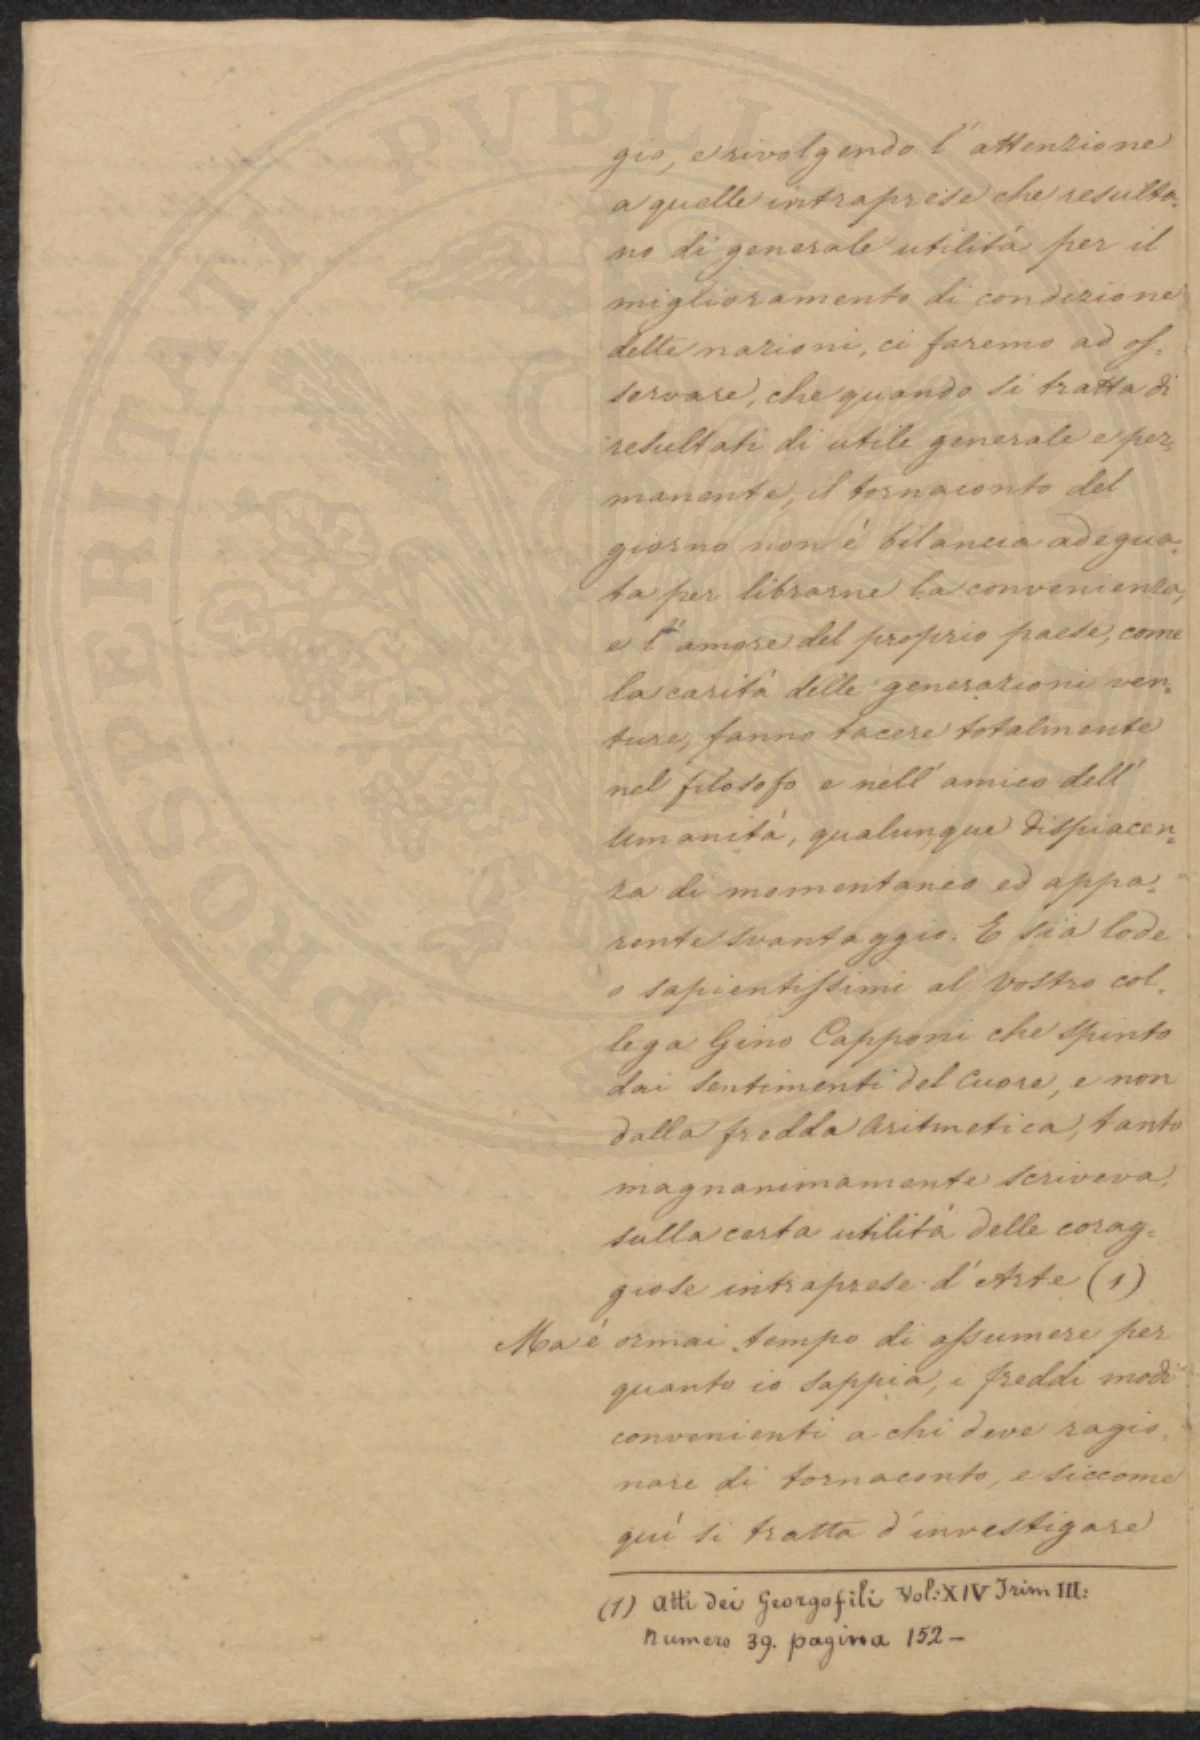 gio, e rivolgendo l'attenzione
a quelle intraprese che resulta-
no di generale utilità per il
miglioramento di condizione
delle nazioni, ci faremo ad os-
servare, che quando si tratta di
resultati di utile generale e per-
manente, il tornaconto del
giorno non è bilancia adegua-
ta per librarne la convenienza,
e l'amore del proprio paese, come
la carità delle generazioni ven-
ture, fanno tacere totalmente
nel filosofo e nell'amico dell'
umanità, qualunque dispiacen-
za di momentaneo ed appa-
rente svantaggio. E sia lode
o sapientissimi al vostro col-
lega Gino Capponi che spinto
dai sentimenti del Cuore, e non
dalla fredda Aritmetica, tanto
magnanimamente scriveva,
sulla certa utilità delle corag-
giose intraprese d'Arte (1)
Ma è ormai tempo di assumere per
quanto io sappia, i freddi modi
convenienti a chi deve ragio-
nare di tornaconto, e siccome
quì si tratta d'investigare
(1) Atti dei Georgofili Vol: XIV Trim III:
Numero 39. pagina 152 —
PROSPERITATI PUBLI